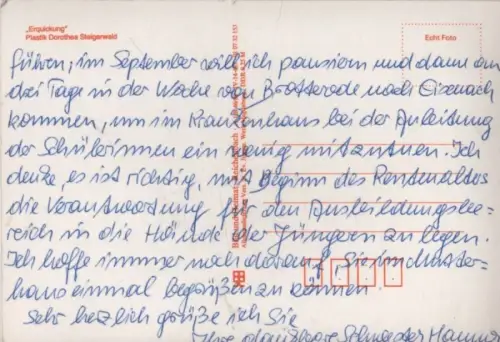 „Erquickung"
Plastik Dorothea Steigerwald
Echt Foto
führen; im September will ich pausieren und dann an
drei Tage in der Woche von Brotterode nach Eisenach
kommen, um im Krankenhaus bei der Anleitung
der Schülerinnen ein wenig mitzutun. Ich
denke, es ist richtig, mit Beginn des Rentenalters
die Verantwortung für den Ausbildungsbe-
reich in die Hände der Jüngern zu legen.
Ich hoffe immer noch darauf, Sie im Mutter-
haus einmal begrüßen zu können
Sehr herzlich grüße ich Sie
Ihre dankbare Schwester Hanna